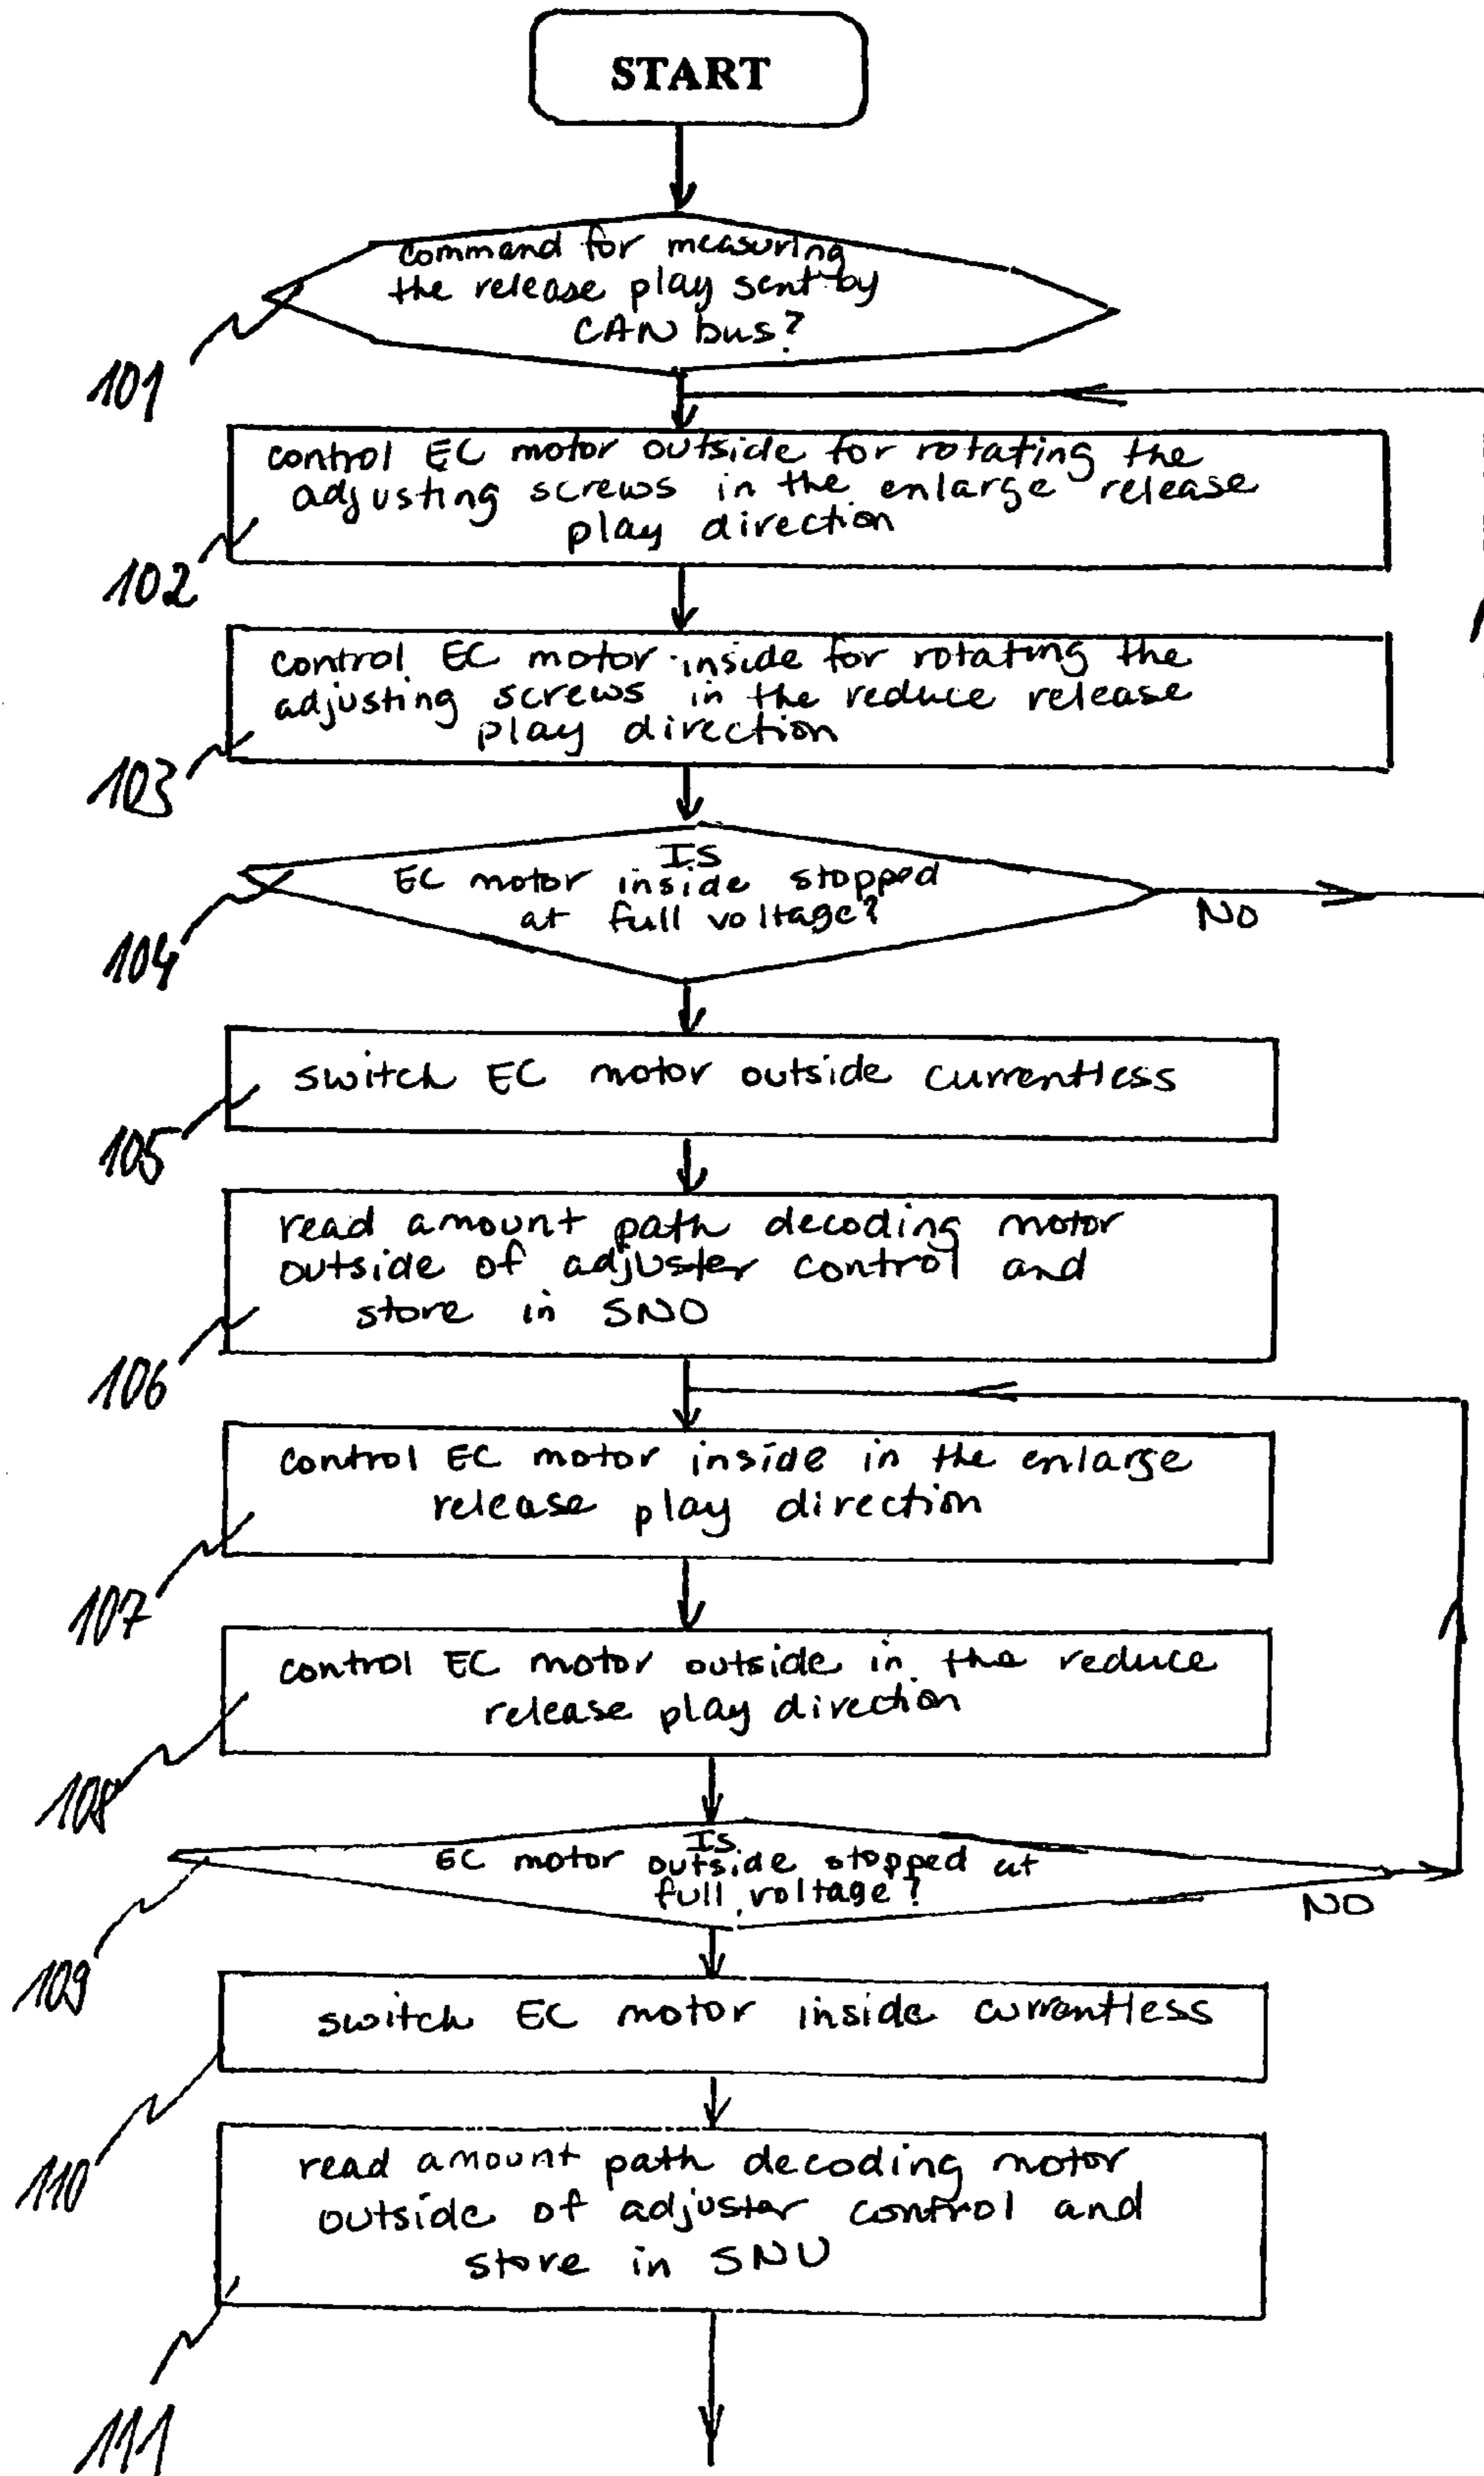 START
command for measuring
the release play sent by
CAN bus?
101
control EC motor outside for rotating the
adjusting screws in the enlarge release
play direction
102
control EC motor inside for rotating the
adjusting screws in the reduce release
play direction
103
Is
EC motor inside stopped
at full voltage?
NO
104
switch EC motor outside currentless
105
read amount path decoding motor
outside of adjuster control and
store in SNO
106
control EC motor inside in the enlarge
release play direction
107
control EC motor outside in the reduce
release play direction
108
Is
EC motor outside stopped at
full voltage?
NO
109
switch EC motor inside currentless
110
read amount path decoding motor
outside of adjuster control and
store in SNU
111